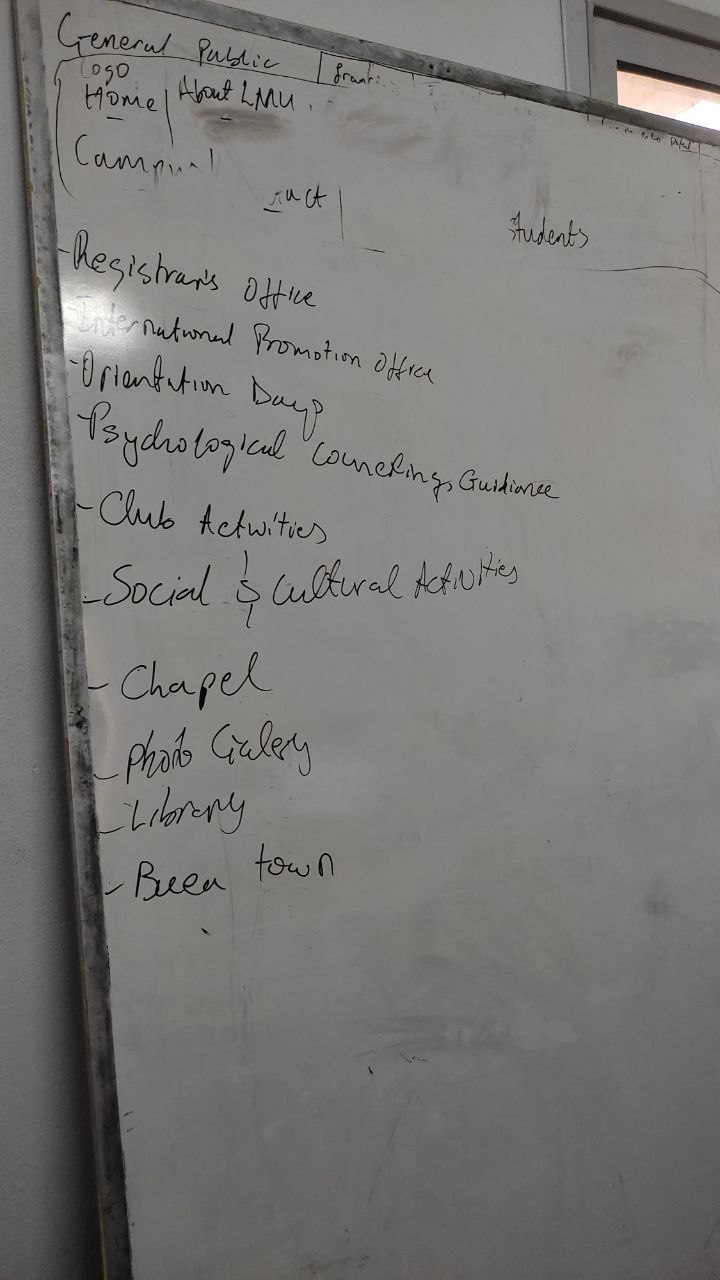 General Public
Logo
Home | About LMU
Students
- Registrar's Office
- International Promotion Office
- Orientation Days
- Psychological Guidiance
- Club Activities
- Social & Cultural Activities
- Chapel
- Photo Galery
- Library
- Buea town